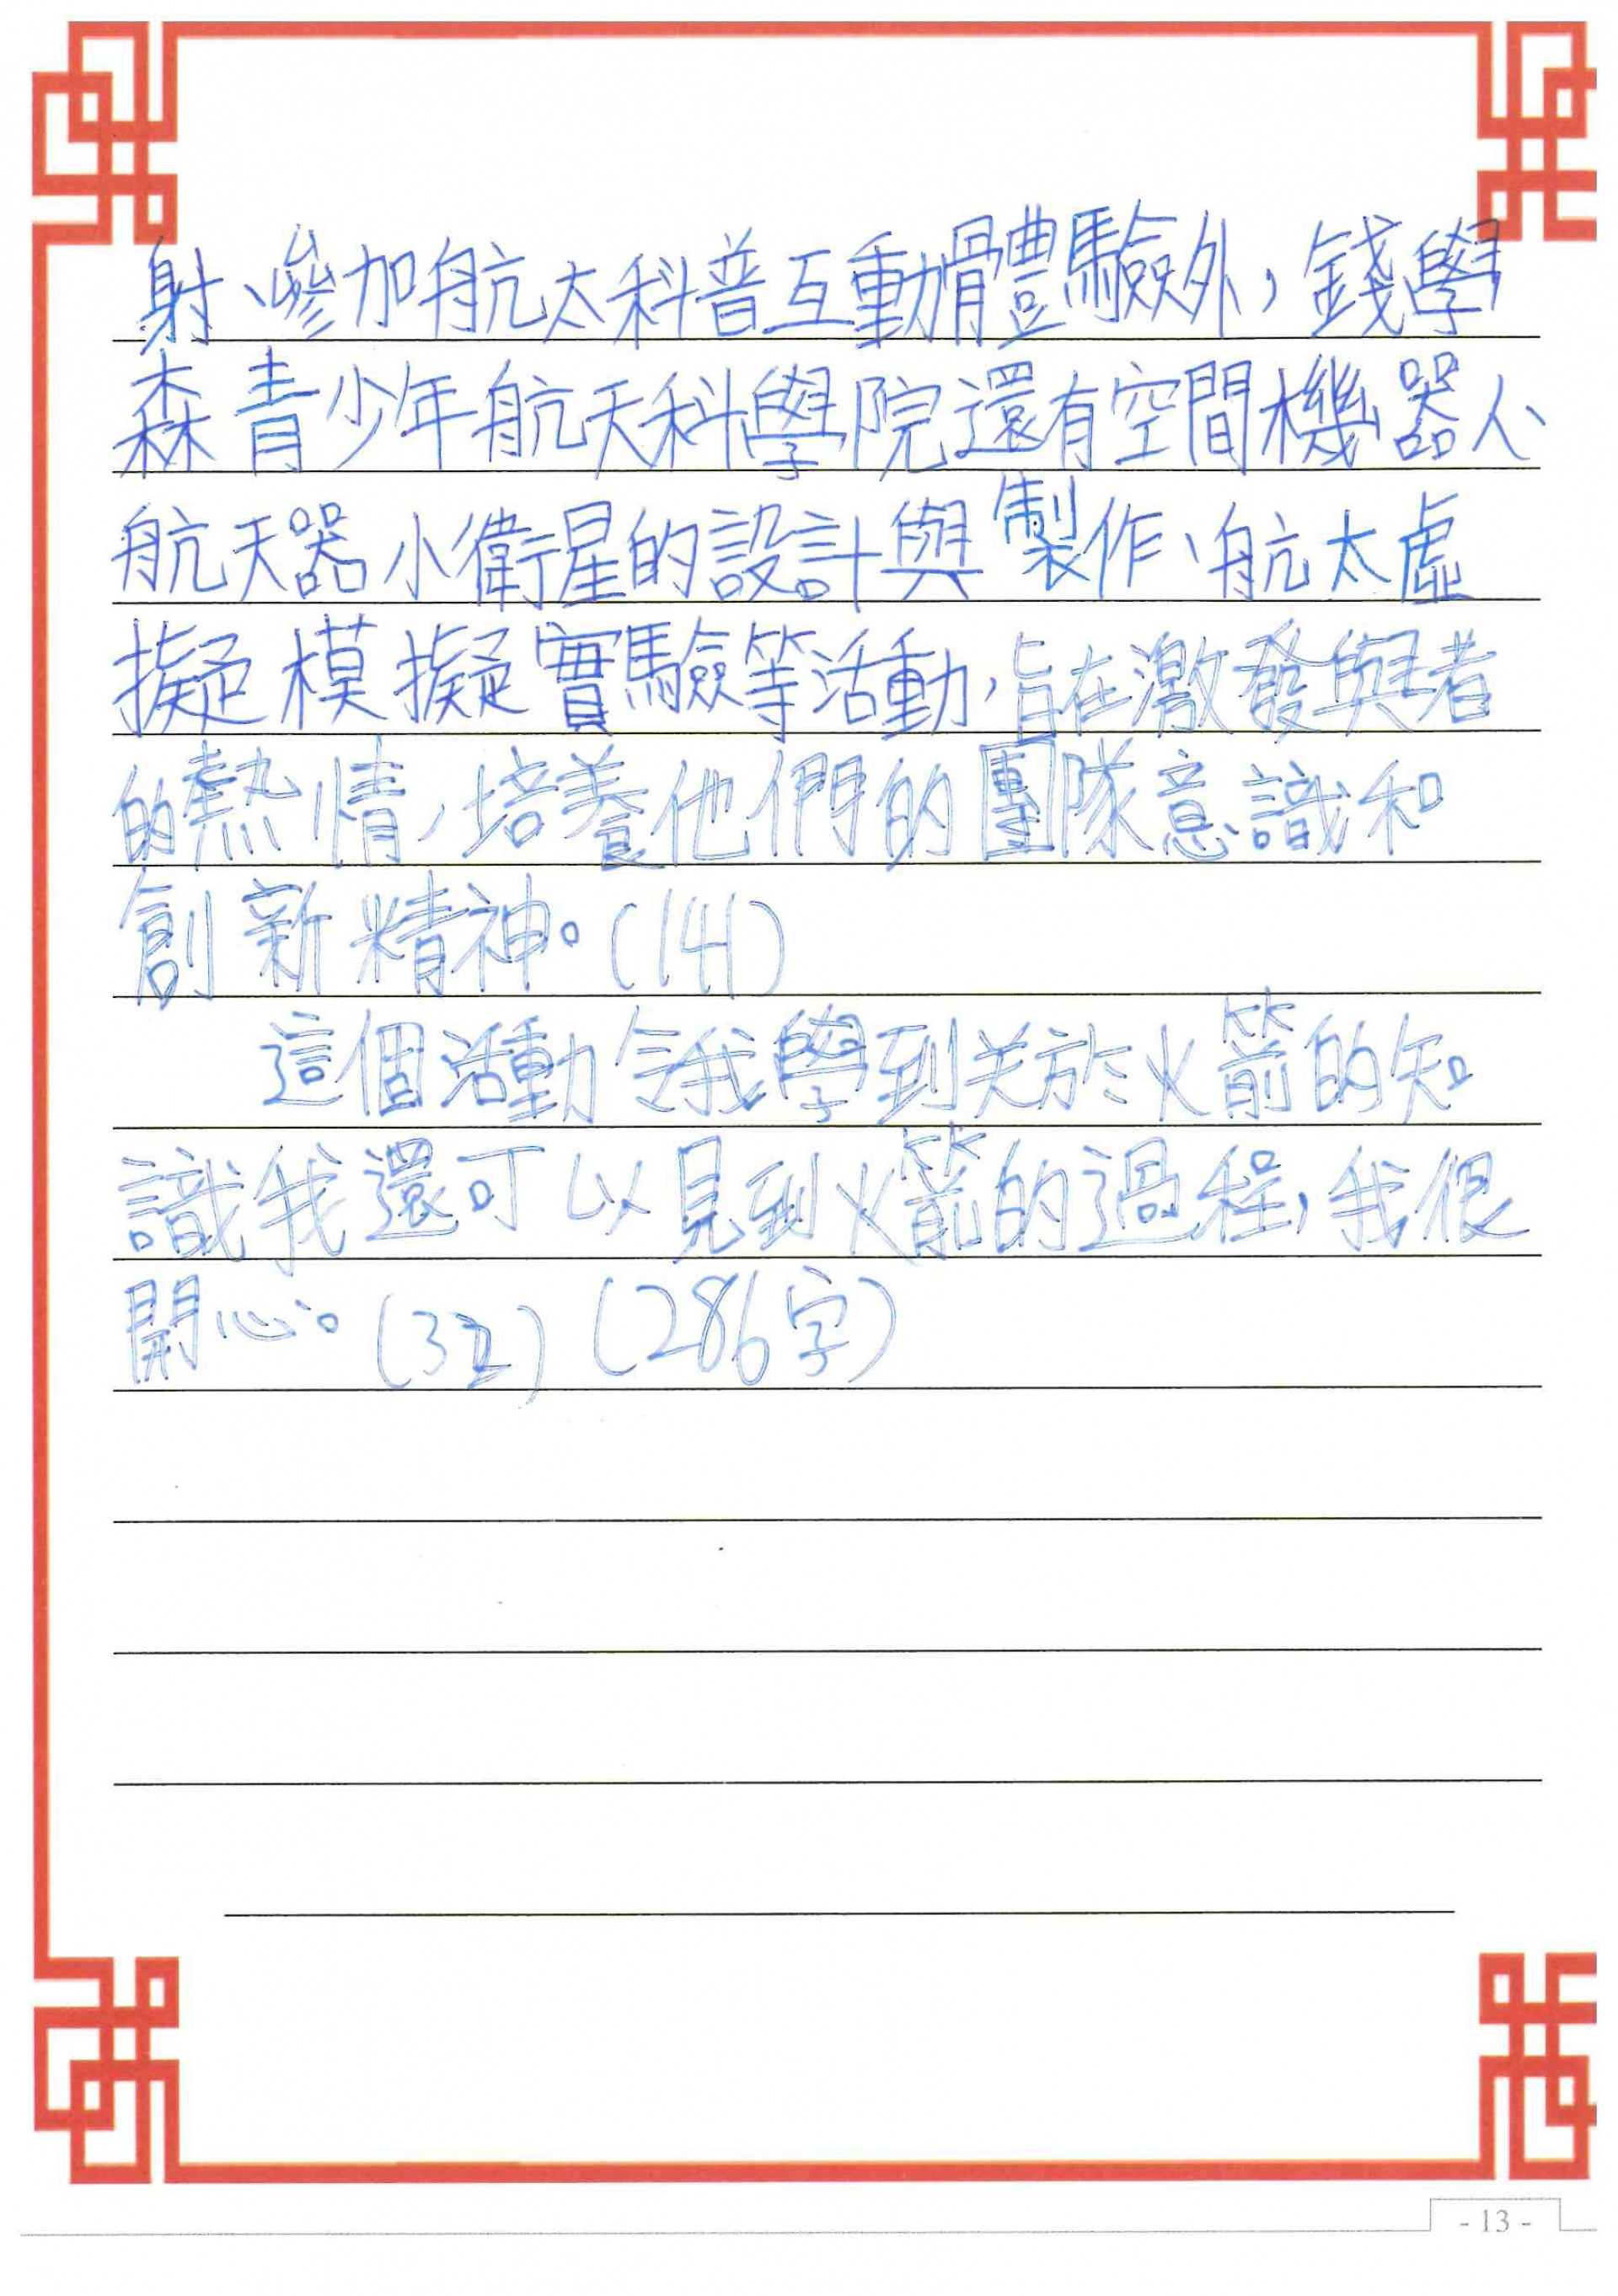 射、參加航太科普互動體驗外，錢學
森青少年航天科學院還有空間機器人、
航天器小衛星的設計與製作、航太虛
擬模擬實驗等活動，旨在激發與者
的熱情，培養他們的團隊意識和
創新精神。(141)
這個活動令我學到关於火箭的知
識我還可以見到火箭的過程，我很
開心。(32) (286字)
- 13 -